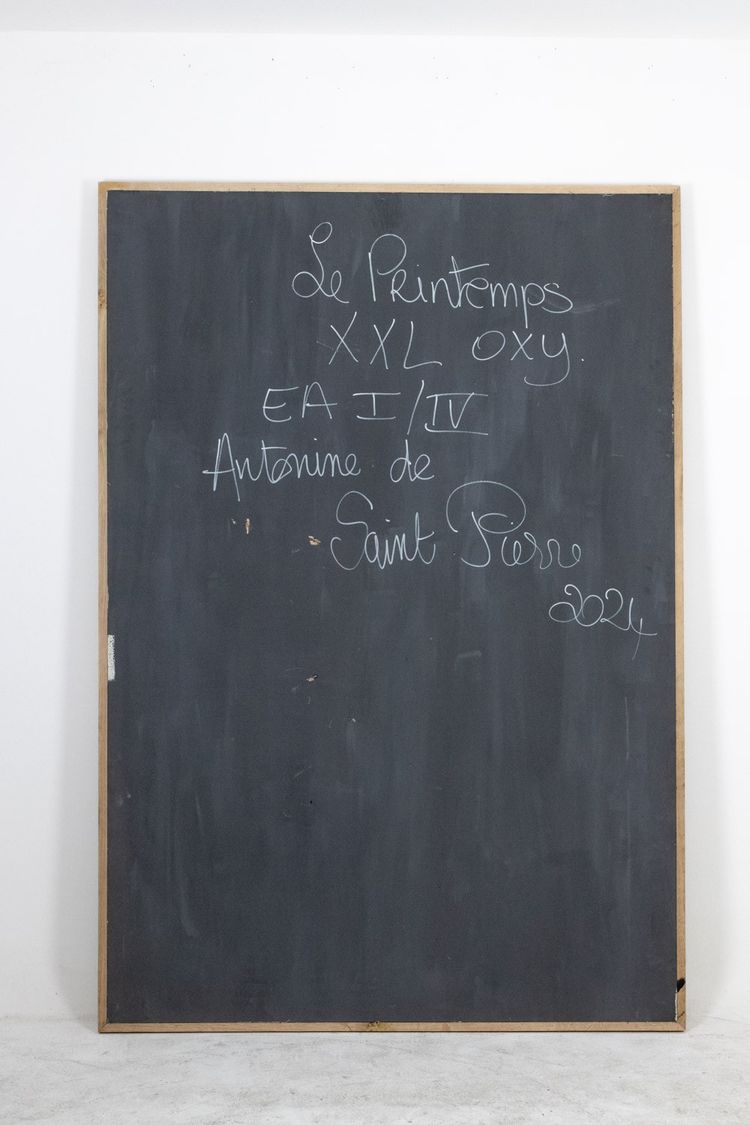 Le Printemps
XXL oxy.
EA I/IV
Antonine de
Saint Pierre
2024